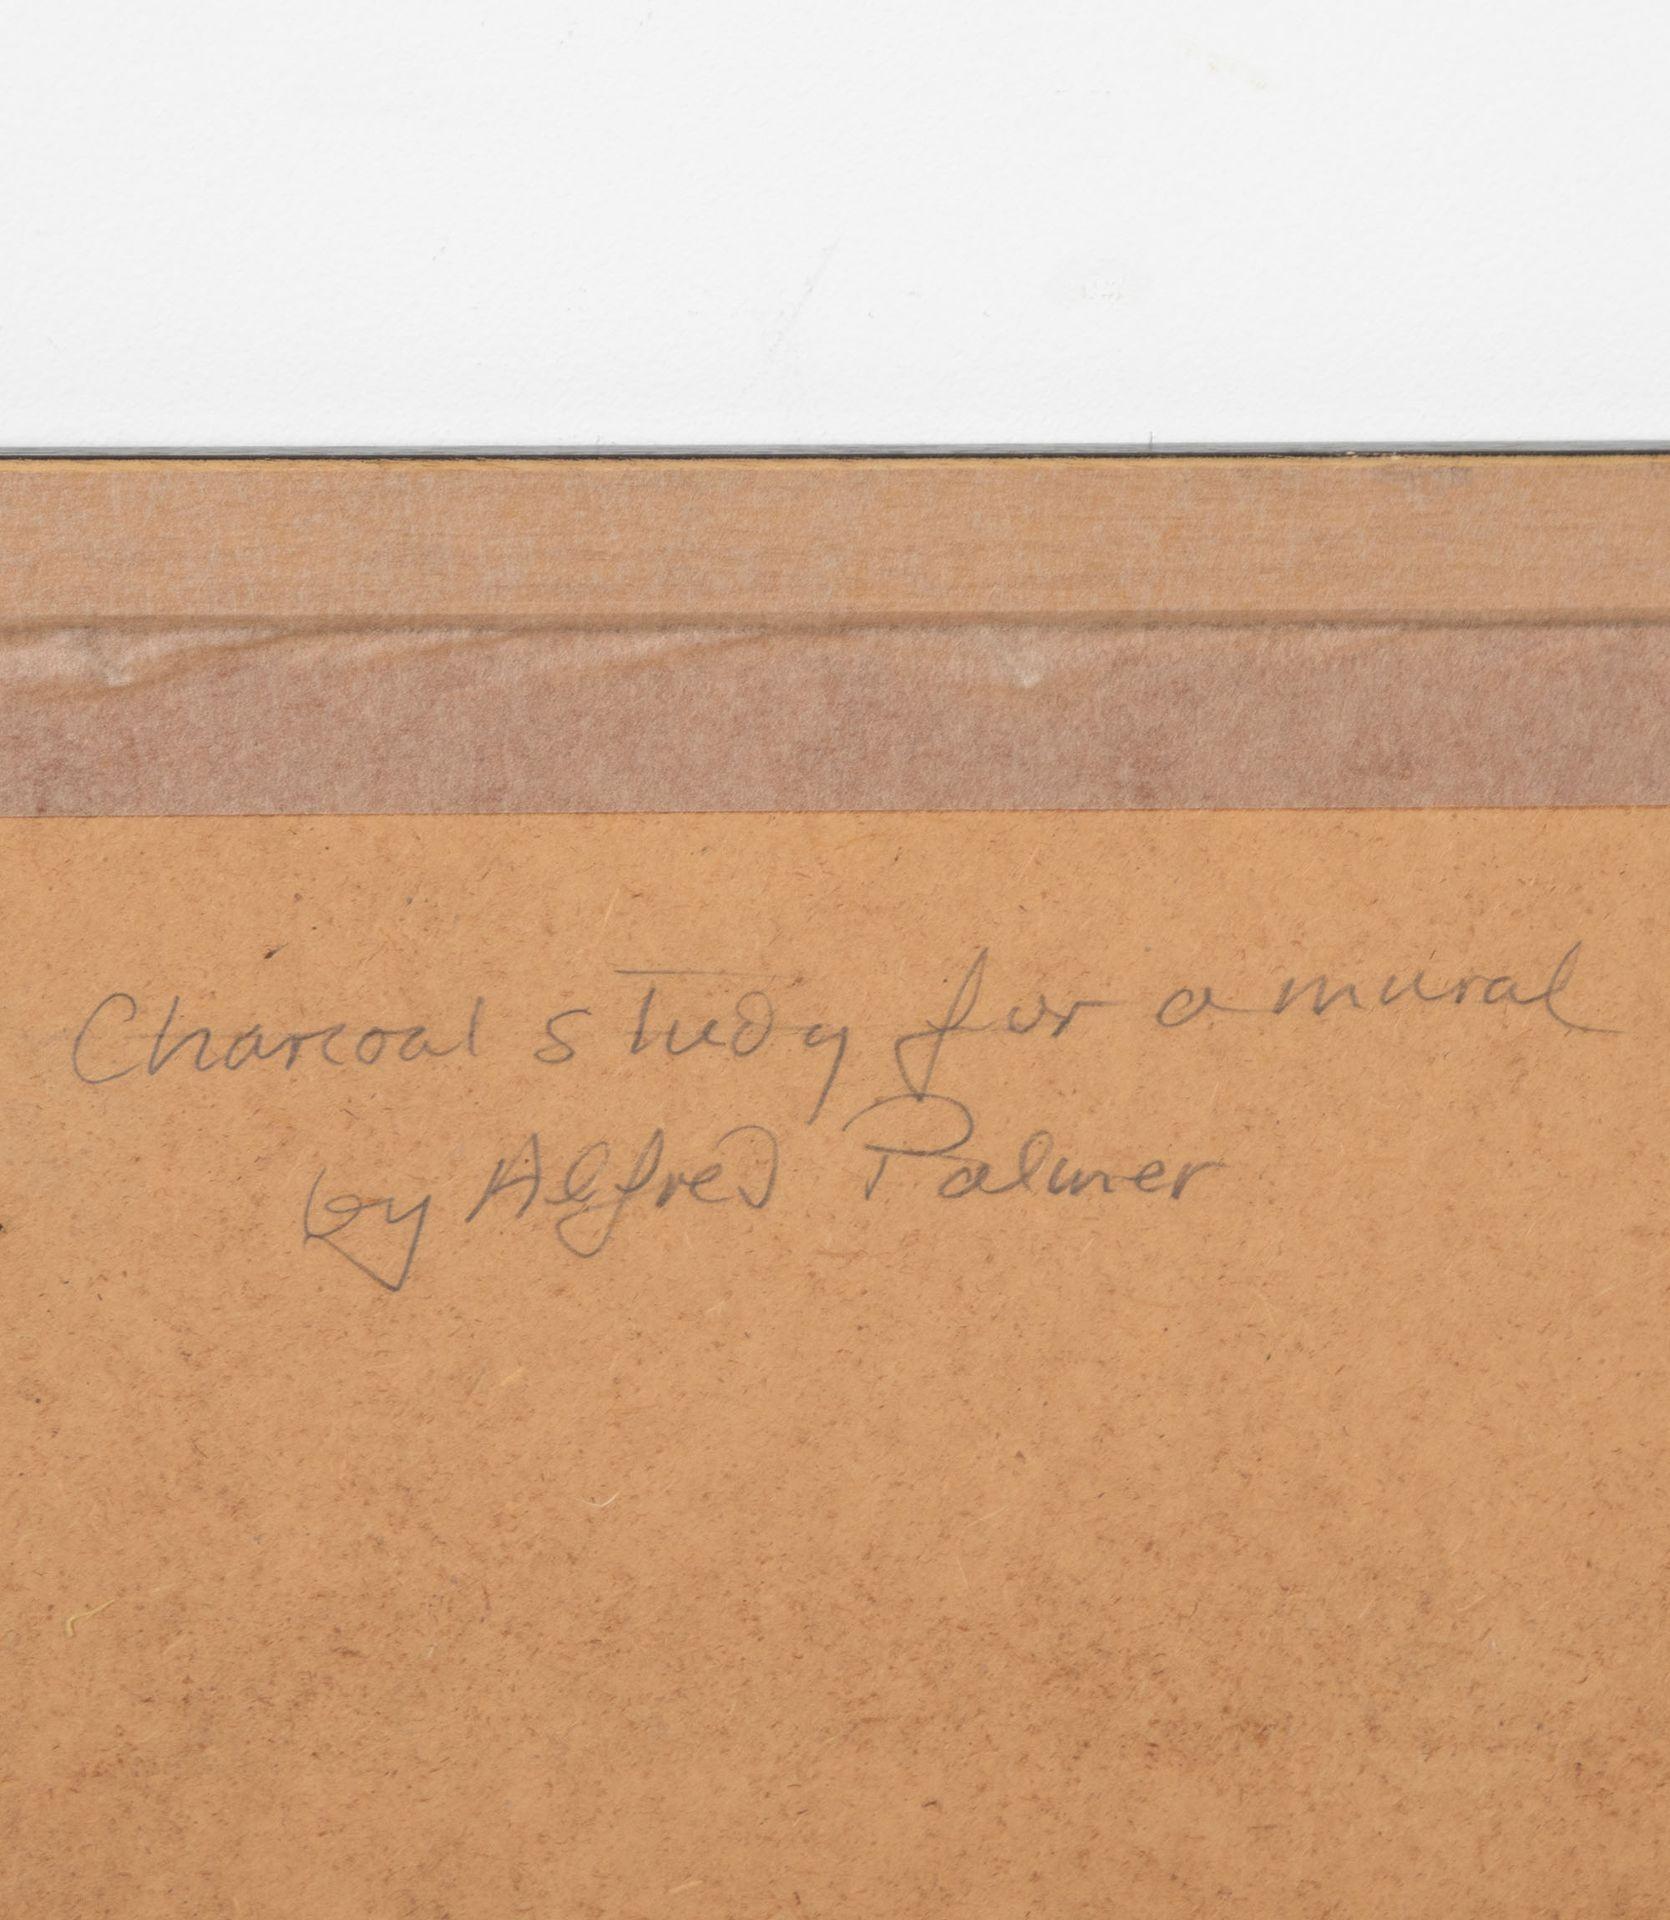 Charcoal study for a mural
by Alfred Palmer